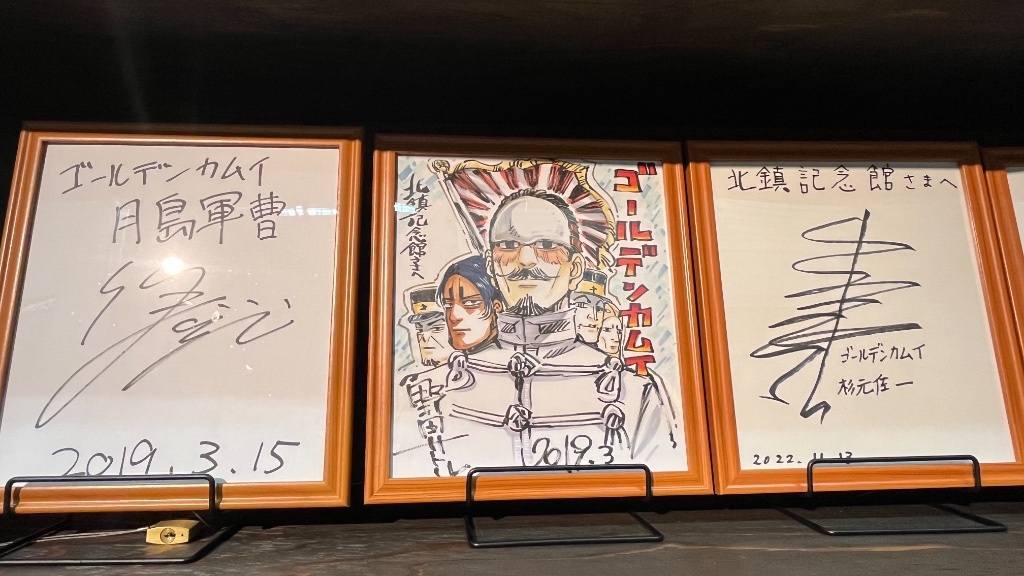 ゴールデンカムイ
月島軍曹
2019.3.15
ゴールデンカムイ
北鎮記念館さまへ
野田サトル
2019.3
北鎮記念館さまへ
ゴールデンカムイ
杉元佐一
2022.11.13